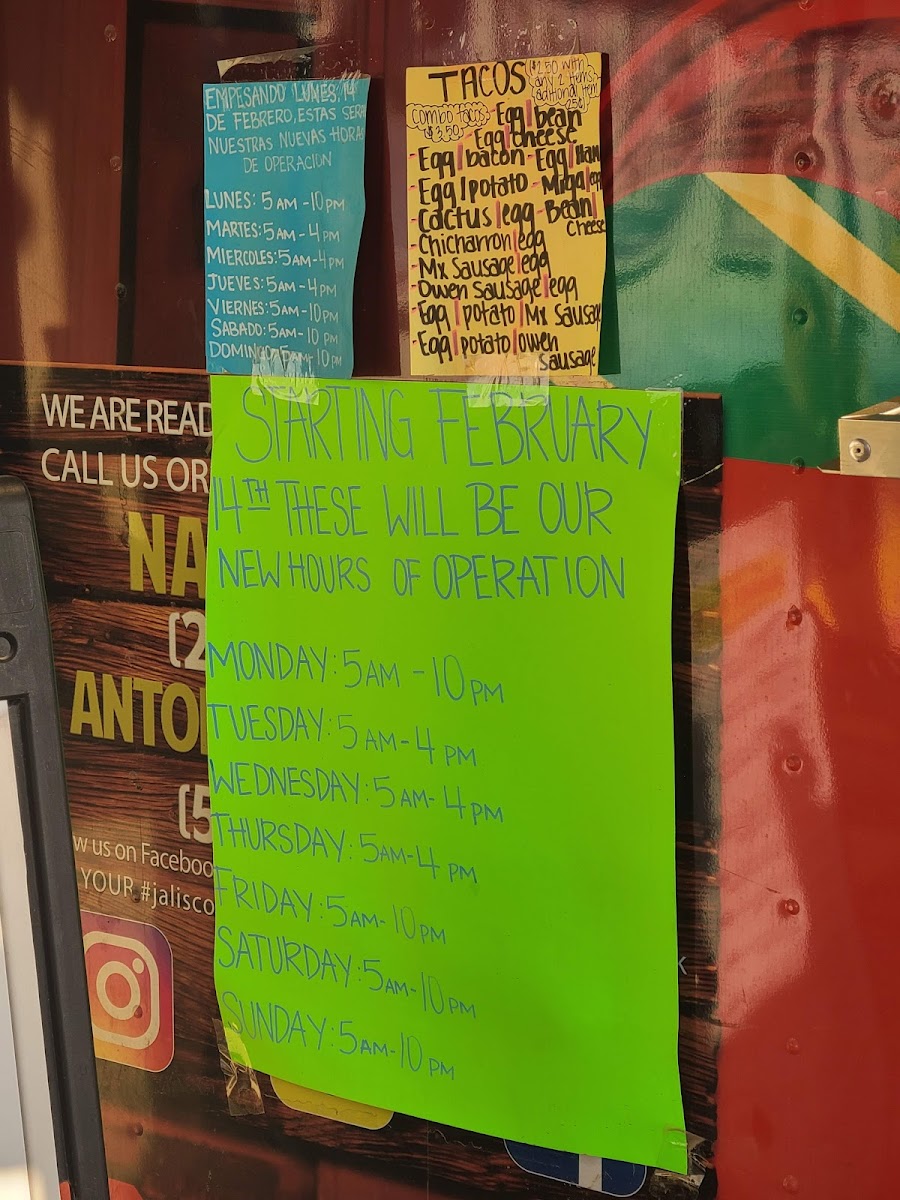 EMPESANDO LUNES, 14
DE FEBRERO, ESTAS SERA
NUESTRAS NUEVAS HORAS
DE OPERACION
LUNES: 5 AM - 10 PM
MARTES: 5 AM - 4 PM
MIERCOLES: 5 AM - 4 PM
JUEVES: 5 AM - 4 PM
VIERNES: 5 AM - 10 PM
SABADO: 5 AM - 10 PM
DOMINGO: 5 AM - 10 PM
TACOS
$2.50 with
any 2 items
aditional item
25¢
combo tacos
$3.50
- Egg/bean
Egg/cheese
- Egg/bacon - Egg/Ham
- Egg/potato - Miga/egg
- Cactus/egg - Bean/
Cheese
- Chicharron/egg
- Mx Sausage/egg
- Owen Sausage/egg
- Egg/potato/Mx Sausag
- Egg/potato/owen
Sausage
STARTING FEBRUARY
14TH THESE WILL BE OUR
NEW HOURS OF OPERATION
MONDAY: 5 AM - 10 PM
TUESDAY: 5 AM - 4 PM
WEDNESDAY: 5 AM - 4 PM
THURSDAY: 5 AM - 4 PM
FRIDAY: 5 AM - 10 PM
SATURDAY: 5 AM - 10 PM
SUNDAY: 5 AM - 10 PM
WE ARE READ
CALL US OR
NA
(2
ANTO
(5
w us on Faceboo
YOUR #jalisco